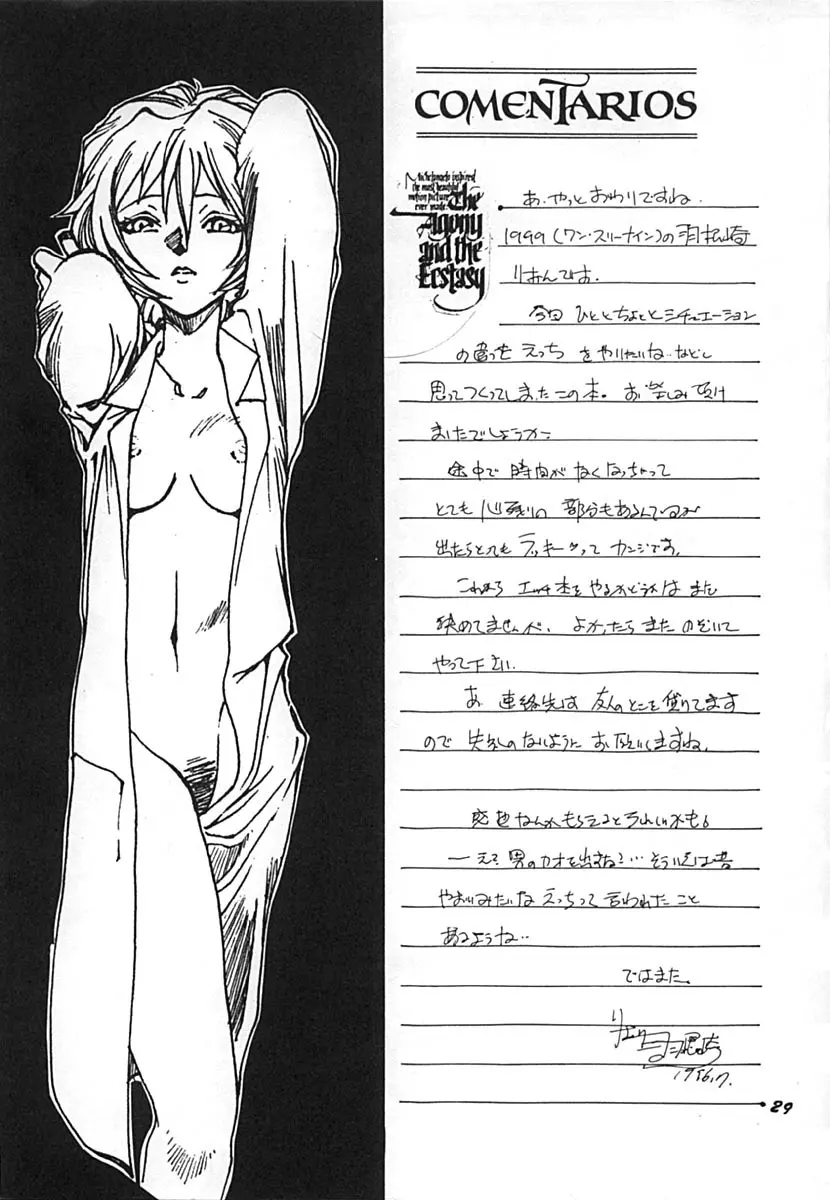 COMENTARIOS
Michelangelo inspired
the most beautiful
motion picture
ever made.
The
Agony
and the
Ecstasy
あ、やっとおわりですね。
1999(ワン・スリーナイン)の羽根崎
りおんです。
今回 ちょっとシチュエーション
の違った えっち をやりたいね…などと
思ってつくってしまったこの本。お楽しみ頂け
ましたでしょうか?
途中で 時間がなくなっちゃって
とても 心残りの 部分もあるんですが
出たらとてもラッキーって カンジです。
これから エッチ本をやるかどうかは まだ
決めてませんが、よかったら また のぞいて
やって下さい。
あ 連絡先は 友人のとこを借りてます
ので 失礼のないように お願いしますね。
感想なんかもらえるとうれしいかも。
―え? 男のカオを出すな?…そういえば昔
やおいみたいな えっちって 言われたこと
あるような…
ではまた。
29